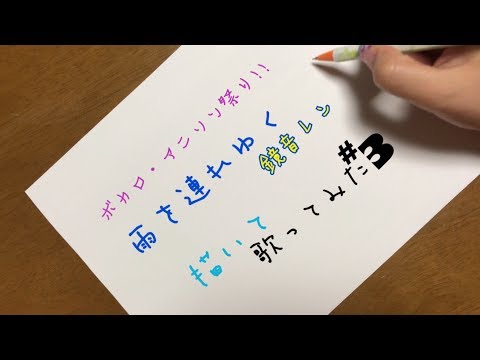 ボカロ・アニソン祭り!!
雨を連れゆく
鏡音レン
描いて
歌ってみた#3